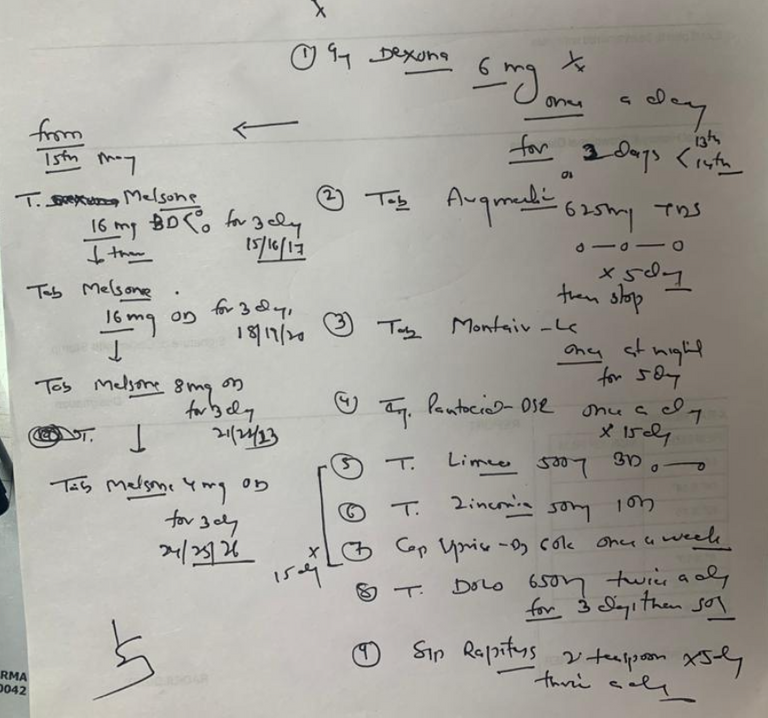 x
① Inj Dexona 6 mg
once a day
for 2 days < 13th
14th
←
from
15th May
T. Melsone
16 mg BD for 3 day
15/16/17
↓ then
Tab Melsone
16 mg OD for 3 day,
18/19/20
↓
Tab Melsone 8mg OD
for 3 day
21/22/23
T. ↓
Tab Melsone 4 mg OD
for 3 day
24/25/26
② Tab 625mg TDS
0 — 0 — 0
x 5 day
then stop
③ Tab Montair - LC
once at night
for 5 day
④ Pantocid - DSR once a dy
x 15 dy
⑤ T. Limcee 500 BD 0 — 0
⑥ T. Zinconia 50mg 1 OD
⑦ Cap Uprise - D3 60k once a week
x
15 dy
⑧ T. Dolo 650 twice a dy
for 3 days then SOS
⑨ Syp 2 teaspoon x 5 dy
thrice a dy
RMA
0042